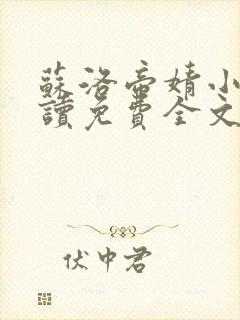 蘇洛帝婧小
讀免費全文
伏中君